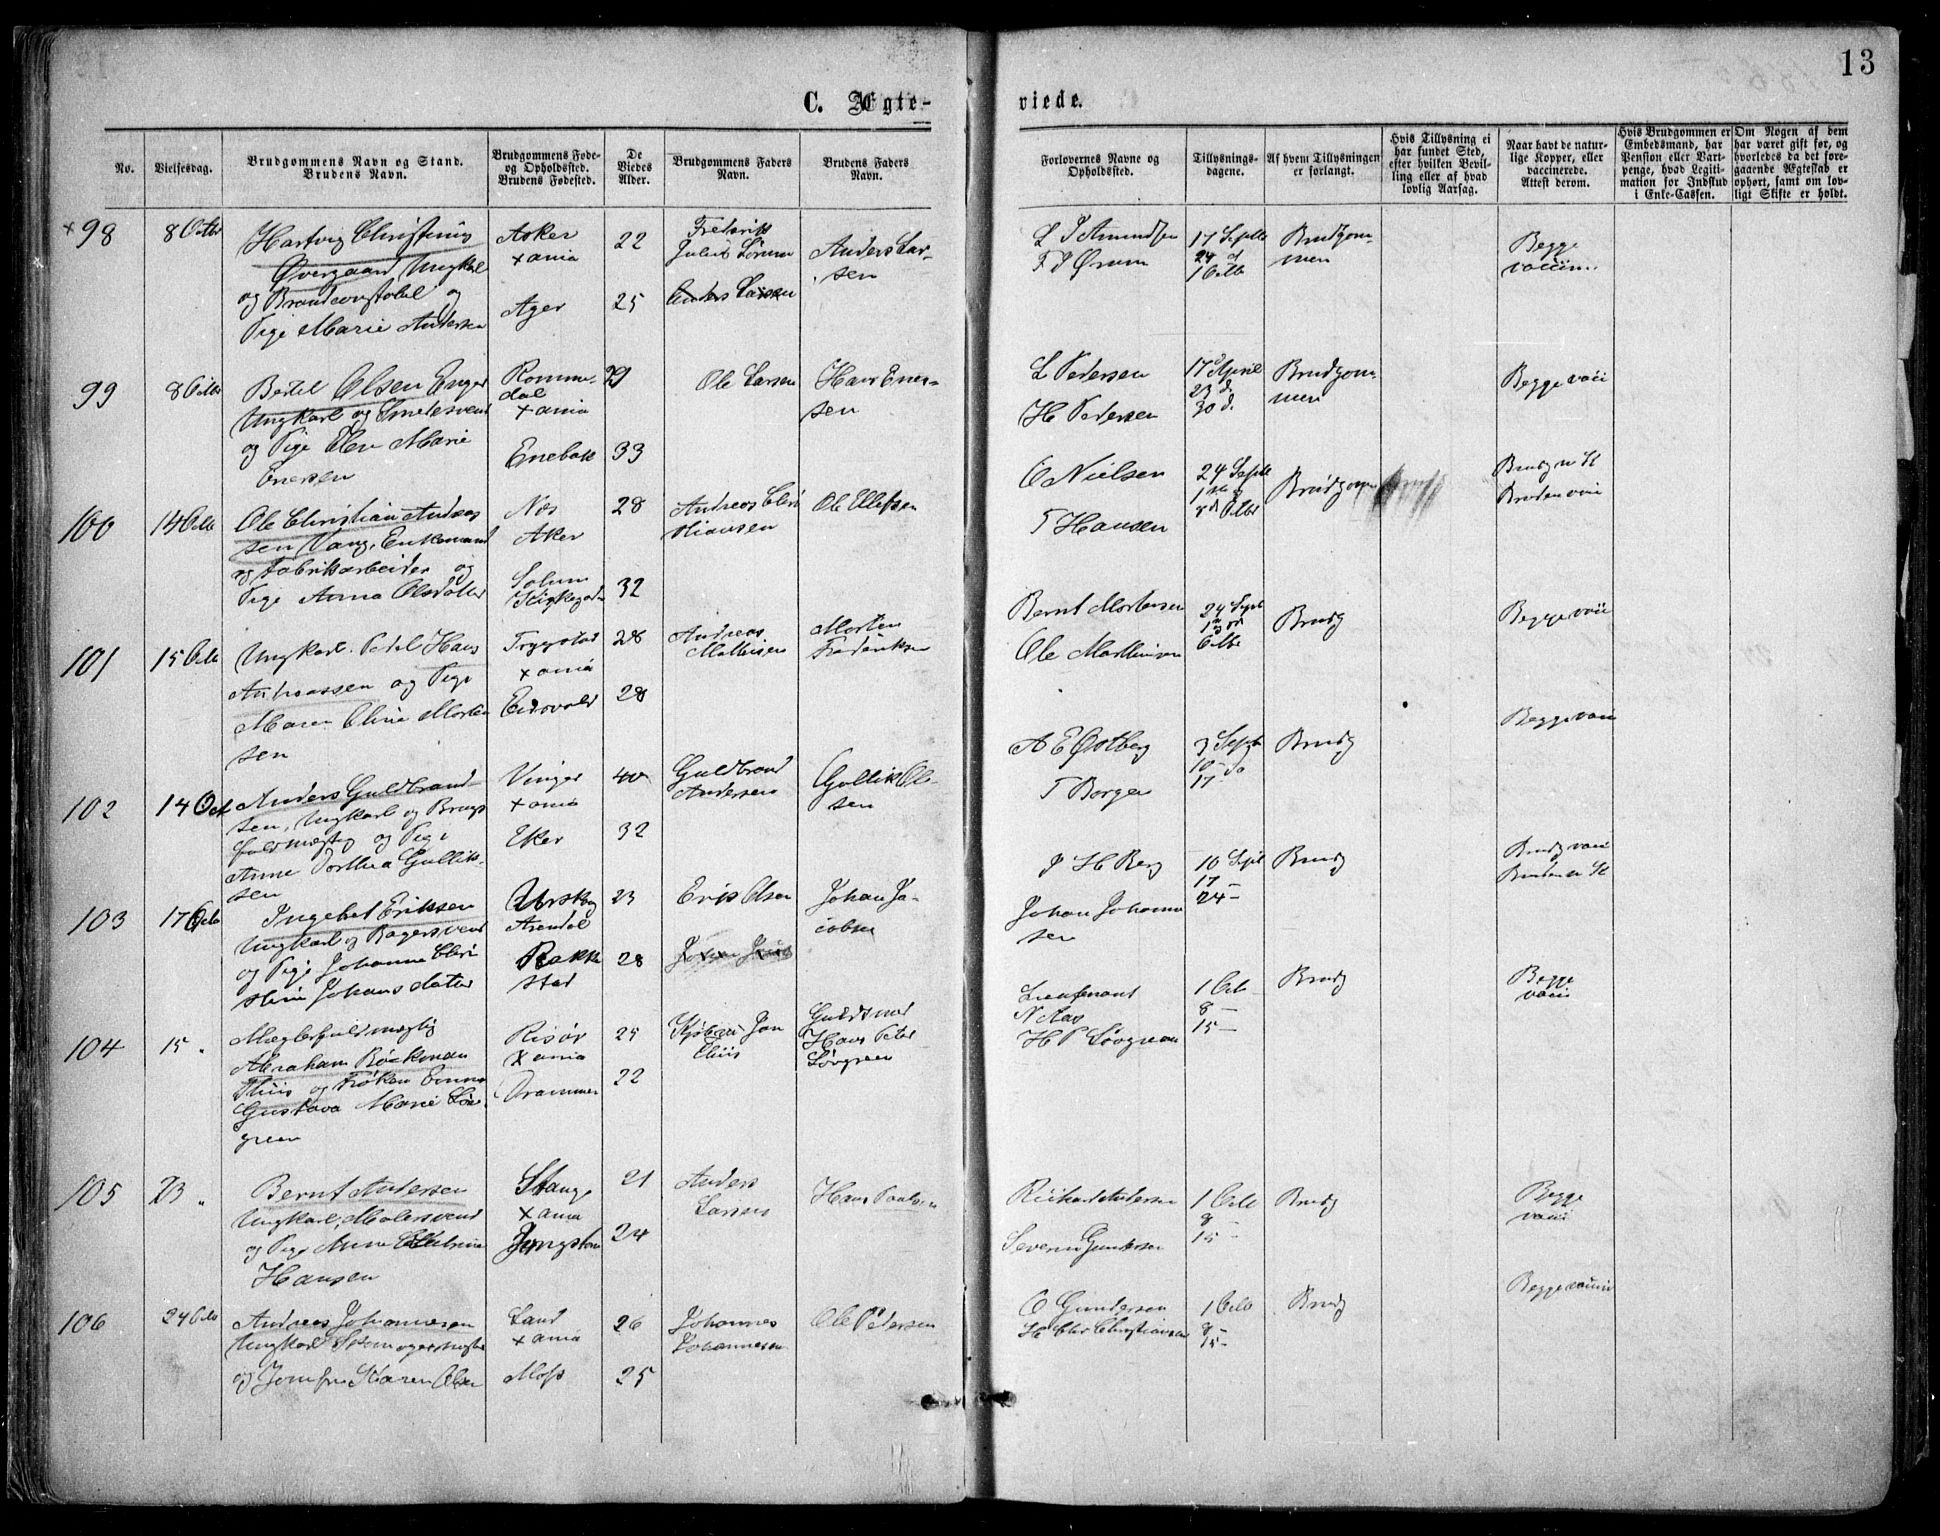 13
C. Ægte-
viede.
No.
Vielsesdag.
Brudgommens Navn og Stand.
Brudens Navn.
Brudgommens Føde-
og Opholdssted.
Brudens Fødested.
De
Viedes
Alder.
Brudgommens Faders
Navn.
Brudens Faders
Navn.
Forlovernes Navne og
Opholdssted.
Tillysnings-
dagene.
Af hvem Tillysningen
er forlangt.
Hvis Tillysning ei
har fundet Sted,
efter hvilken Bevil-
ling eller af hvad
lovlig Aarsag.
Naar havt de natur-
lige Kopper, eller
vaccinerede.
Attest derom.
Hvis Brudgommen er
Embedsmand, har
Pension eller Vart-
penge, hvad Legiti-
mation for Indskud
i Enke-Cassen.
Om Nogen af dem
har været gift før, og
hvorledes da det fore-
gaaende Ægteskab er
ophørt, samt om lov-
ligt Skifte er holdt.
+98
8 Octbr
Hartvig Christinus
Overgaard, Ungkarl
og Brandconstabel og
Pige Marie Andersen
Asker
xania
Ager
22
25
Frederik
Julius
Anders Larsen
Anders Lar-
sen
L P Amundsen
T J Ørum
17 Septb
24 d
1 Octb
Brudgom-
men
Begge
vaccin.
99
8 Octbr
Bertel Olsen Enger
Ungkarl og Smedesvend
og Pige Elen Marie
Enersen
Romme-
dal
xania
Enebak
29
33
Ole Larsen
Hans Ener-
sen
L Pedersen
H Pedersen
17 April
23 d.
30 d.
Brudgom-
men
Begge vacc
100
14 Octb
Ole Christian Andreas
sen Vang, Enkemand
og Fabriksarbeider og
Pige Anna Olsdatter
Nes
Aker
Solum
28
32
Andreas Chri
stiansen
Ole Ellefsen
O Nielsen
T Hansen
24 Septb
1
8d Octbr
Brudgom
Brudg n K
Bruden vac
101
15 Octb
Ungkarl Pedel Hans
Andreassen og Pige
Maren Oline Morten
sen
Trygstad
xania
Eidsvold
28
28
Andreas
Mathisen
Morten
Frederiksen
Bernt Mortensen
Ole Martinsen
24 Sept
Octbr
Brudg
Begge vacc
102
14 Oct
Anders Guldbrand
sen, Ungkarl og Brugs
fuldmægtig og Pige
Anne Dorthea Gullik-
sen
Vinger
xania
Eker
40
32
Guldbrand
Andersen
Gullik Ol-
sen
A E Østberg
T Borgen
3 Septb
10 do
17
Brudg
Begge vacc
103
17 Octb
Ingebret Eriksen
Ungkarl og Bagersvend
og Pige Johanne Chri
stine Johansdatter
Urskog
Arendal
Rakke
stad
23
28
Erik Olsen
Johan Ja-
cobsen
P H Berg
Johan Johanne
sen
10 Sept
17
24 –
Brudg
Brudg vacc
Bruden n K
104
15 "
Mæglerfuldmægtig
Abraham Bøckman
Thiis og Frøken Emma
Gustava Marie Løv-
green
Risør
xania
Drammen
25
22
Kjøbm Jan
Thiis
Guldsmed
Hans Peter
Løvgreen
Lieutenant
N Aas
H P Løvgreen
1 Octb
8 –
15 –
Brudg
Begge
vacc
105
23 "
Bernt Andersen
Ungkarl, Malersvend
og Pige Anne Cathrine
Hansen
Stange
xania
21
24
Anders
Larsen
Hans Paulsen
Richard Andersen
Severin Gundersen
1 Octb
8
15 –
Brudg
Begge
vacc
106
24 Octb
Andreas Johannesen
Ungkarl
og Jomfru Karen Olsen
Land
xania
Moss
26
25
Johannes
Johannesen
Ole Pedersen
O Gundersen
H Chr Christiansen
1 Octb
8 –
15 –
Brudg
Begge vaccin